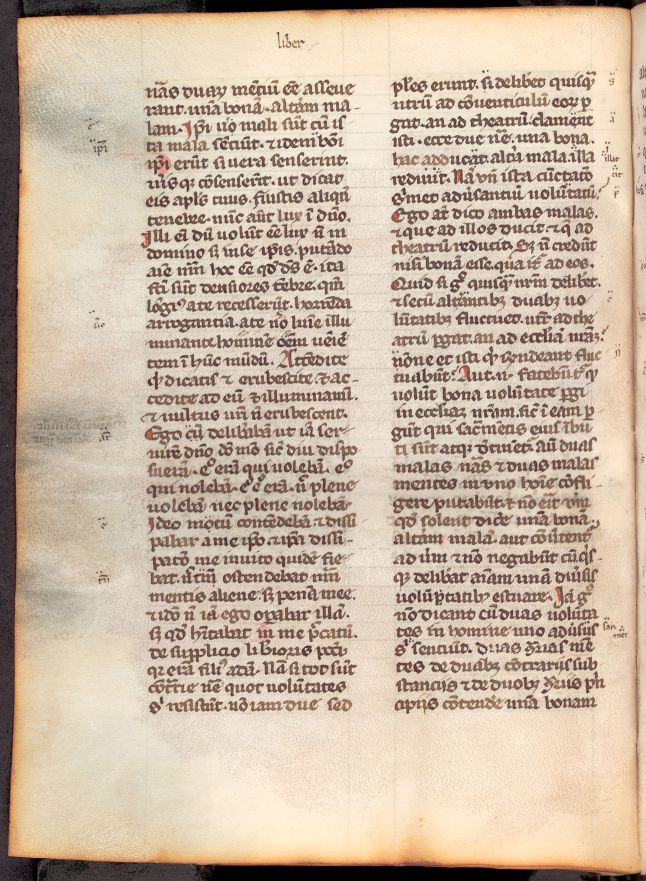 liber
nãs duaɤ mẽtiũ eẽ asseue
rant. unã bonã. alt̃am ma
lam. Ip̃i uo̊ mali sũt cũ is
ta mala sẽciũt. ⁊ idem boĩ
ip̃i erũt si uera senserint.
uisqꝫ cõsenserĩt. ut dicat
eis apl̃s tuus. fuistis aliqñ
tenebre. nũc aũt lux ĩ dño.
Illi eĩ dũ uolũt eẽ lux ñ in
domino sꝫ in se ip̃is. putãdo
aĩe nr̃m hoc eẽ qd̃ ds̃ ẽ. ita
fc̃ti sũt densiores tẽbre. qm̃
lõgiꝰ a te recesserũt. horrẽda
arrogantia. a te uo̊ lumĩe illu
minante hominẽ oẽm ueniẽ
tem ĩ hũc mũdũ. Attẽdite
qd̃ dicatis ⁊ erubescite. ⁊ ac
cedite ad eũ ⁊ illuminaminĩ.
⁊ uultus ur̃i ñ erubescent.
Ego cũ deliberabã ut iã ser
uirẽ dño dõ meo sic̃ diu dispo
suerã. egº erã qui uolebã. egº
qui nolebã. egº erã. ñ plene
uolebã nec plene nolebã.
Ideo mecũ contẽdebã ⁊ dissi
pabar a me ip̃o. ⁊ ip̃a dissi
patio me inuito quidẽ fie
bat. ñ tñ ostendebat nãm
mentis aliene. sꝫ penã mee.
⁊ ido̊ ñ iã ego opabar illã.
sꝫ qd̃ hĩtabat in me p̃catũ.
de supplicio libioris pcc̃i
qꝫ erã filiꝰ adã. Nã si tot sũt
cõtr̃ie ne̊ quot uolũtates
s̃ resistũt. nõ iam due sed
pl̃es erunt. si delibet quisq̃
utrũ ad cõuenticulũ eoɤ p
gat. an ad theatrũ. clamẽnt
isti. ecce due ne̊. una bona.
hac adducit̃. alt̃a mala. illa
reducit. Nã uñ ista cũctatõ
s̃met aduersantiũ uolũtatũ.
Ego at̃ dico ambas malas.
⁊ que ad illos ducit. ⁊ q̃ ad
theatrũ reducit. Sꝫ ñ credũt
nisi bonã esse. qua it̃ ad eos.
Quid si gº quisqꝫ nr̃m delibet.
⁊ secũ alt̃antibꝫ duabꝫ uo
lũtatibꝫ fluctuet. utr̃ ad the
atrũ pgat. an ad eccl̃iam nr̃aꝫ.
nõne et isti qd̃ r̃ndeant fluc
tuabũt. Aut .n. fatebũt̃ qd̃
uolũt bona uolũtate pgi
in eccl̃iaꝫ nr̃am. sic̃ ĩ eam p
gũt qui sac̃mentis eius ĩbu
ti sũt atqꝫ detinent̃. au̇t duas
malas nãs ⁊ duas malas
mentes in uno hoĩe cõfli
gere putabũt. ⁊ nõ erit uerũ
qd̃ solent dice̊. unã bonã
alt̃am malã. aut cõuertent̃
ad uerũ ⁊ nõ negabũt cũ q̃s
qꝫ delibat aĩam unã diũsis
uolũptatibꝫ estuare. Iã gº
nõ dicant cũ duas uolũta
tes in homine uno aduersas
s̃ sentiunt. duas ⁊̃rias mẽ
tes de duabꝫ cõtrarijs sub
stanciis ⁊ de duobꝫ ⁊̃riis prĩ
cipijs cõtende̊. unã bonam